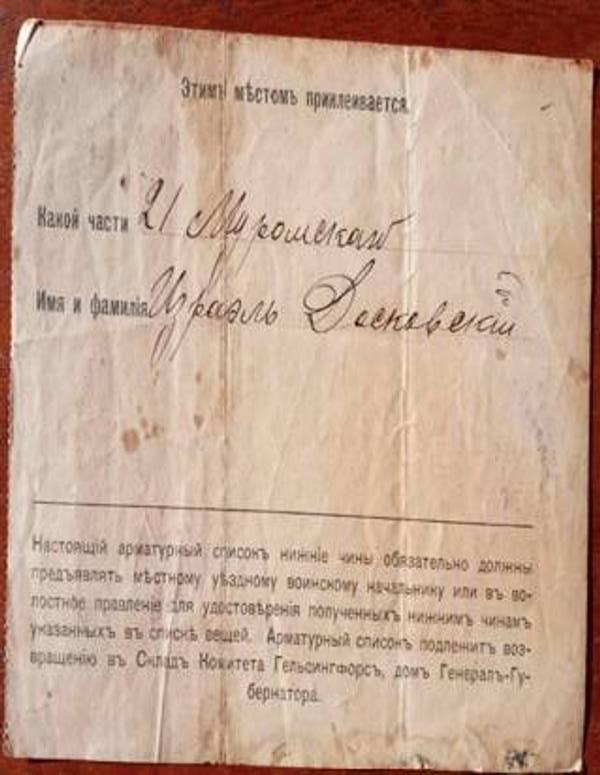 Этимъ мѣстомъ приклеивается.
Какой части 21 Муромскаго
Имя и фамилія Израэль Досковскій
Настоящій арматурный списокъ нижніе чины обязательно должны
предъявлять мѣстному уѣздному воинскому начальнику или въ во-
лостное правленіе для удостовѣренія полученныхъ нижнимъ чинамъ
указанныхъ въ спискѣ вещей. Арматурный списокъ подлежитъ воз-
вращенію въ Складъ Комитета Гельсингфорсъ, домъ Генералъ-Гу-
бернатора.